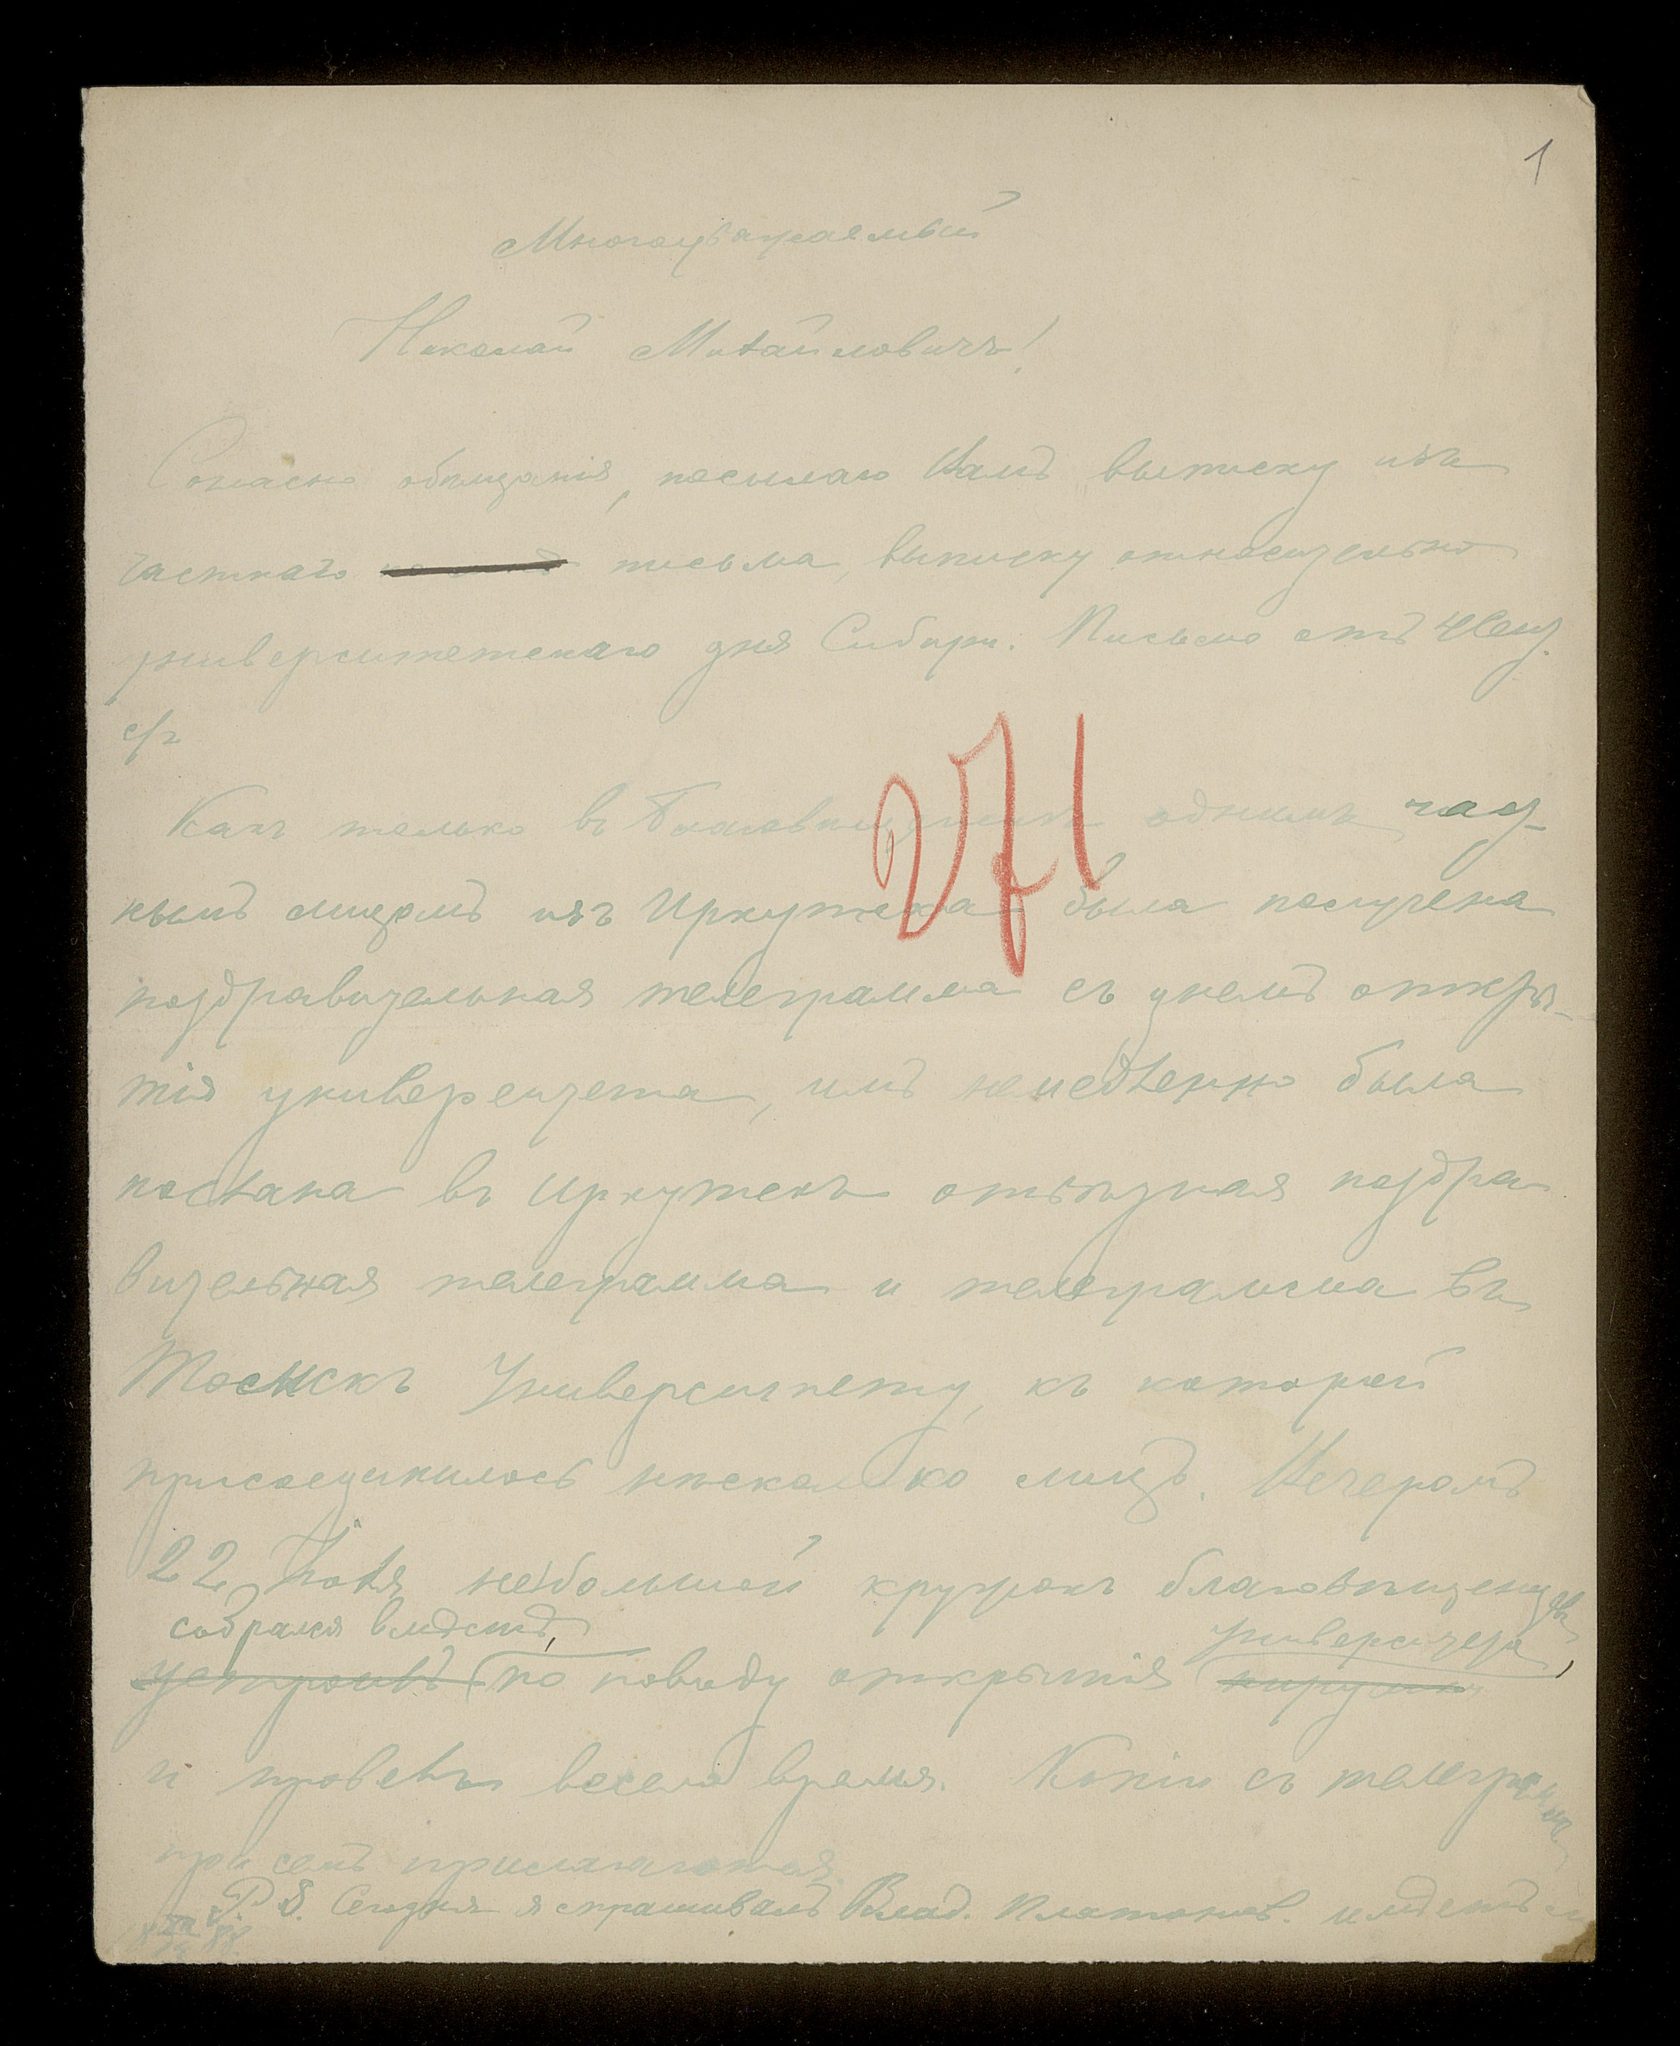 1
Многоуважаемый
Николай Михайловичъ!
Согласно обѣщанія, посылаю Вамъ выписку изъ
частнаго письма, выписку относительно
университетскаго дня Сибири. Письмо отъ
с/г
271
Какъ только въ Благовѣщенскѣ однимъ част-
нымъ лицомъ изъ Иркутска была получена
поздравительная телеграмма съ днемъ откры-
тія университета, имъ немедленно была
послана въ Иркутскъ отвѣтная поздра
вительная телеграмма и телеграмма въ
Томскъ Университету, къ которой
присоединилось нѣсколько лицъ. Вечеромъ
22 Іюля небольшой кружокъ благовѣщенцевъ
собрался вмѣстѣ, университета,
устроилъ по поводу открытія
и провелъ весело время. Копіи съ телеграммъ
при семъ прилагаются.
P.S. Сегодня я спрашивалъ Влад. Платонов.